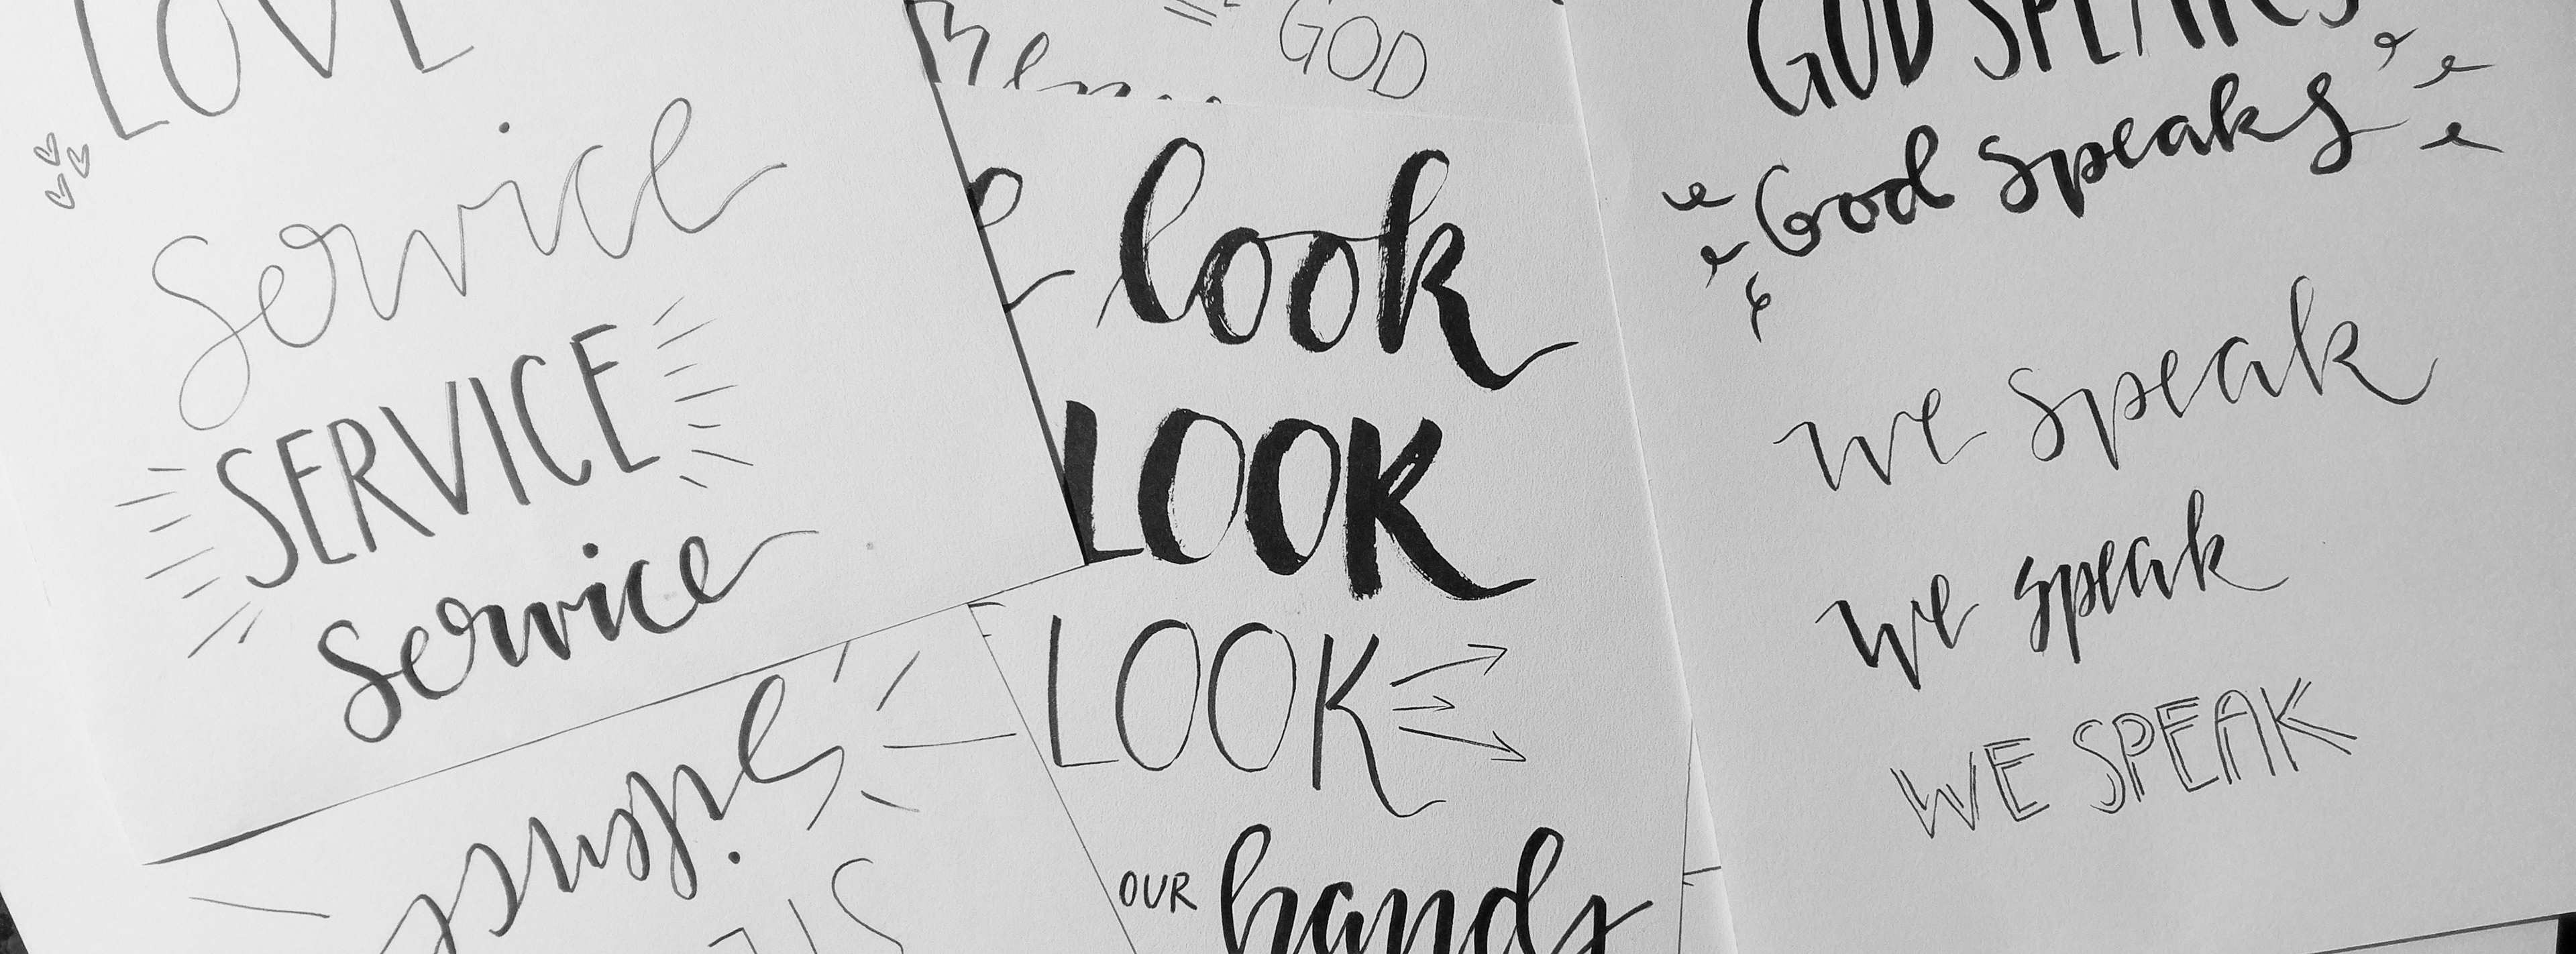 LOVE
Service
SERVICE
Service
GOD
look
LOOK
LOOK
OUR hands
GOD SPEAKS
God Speaks
we speak
we speak
WE SPEAK